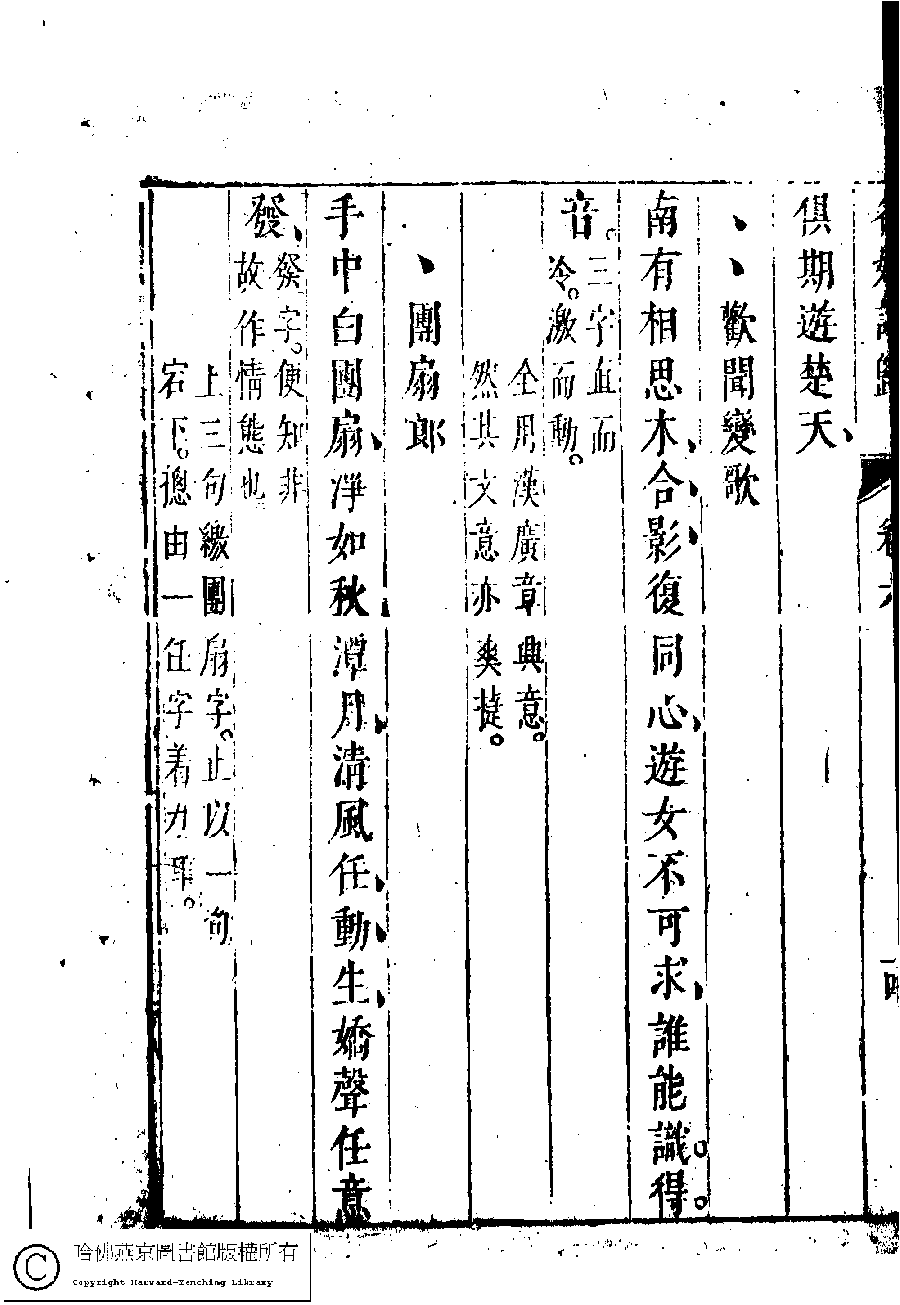 俱期遊楚天、
、、歡聞變歌
南有相思木、合、影、復同心、遊女不可求、誰能識。得。
音。三字血而
冷。激而動。
全用漢廣章興意。
然其文意亦爽捷。
、團扇郎
手中白團扇、淨如秋潭月、清風任、動、生、嬌聲任意
發、發字。便知非
故作情態也
上三句纔團扇字。止以一句
宕下。總由一任字着力耳。
哈佛燕京圖書館版權所有
Copyright Harvard-Yenching Library